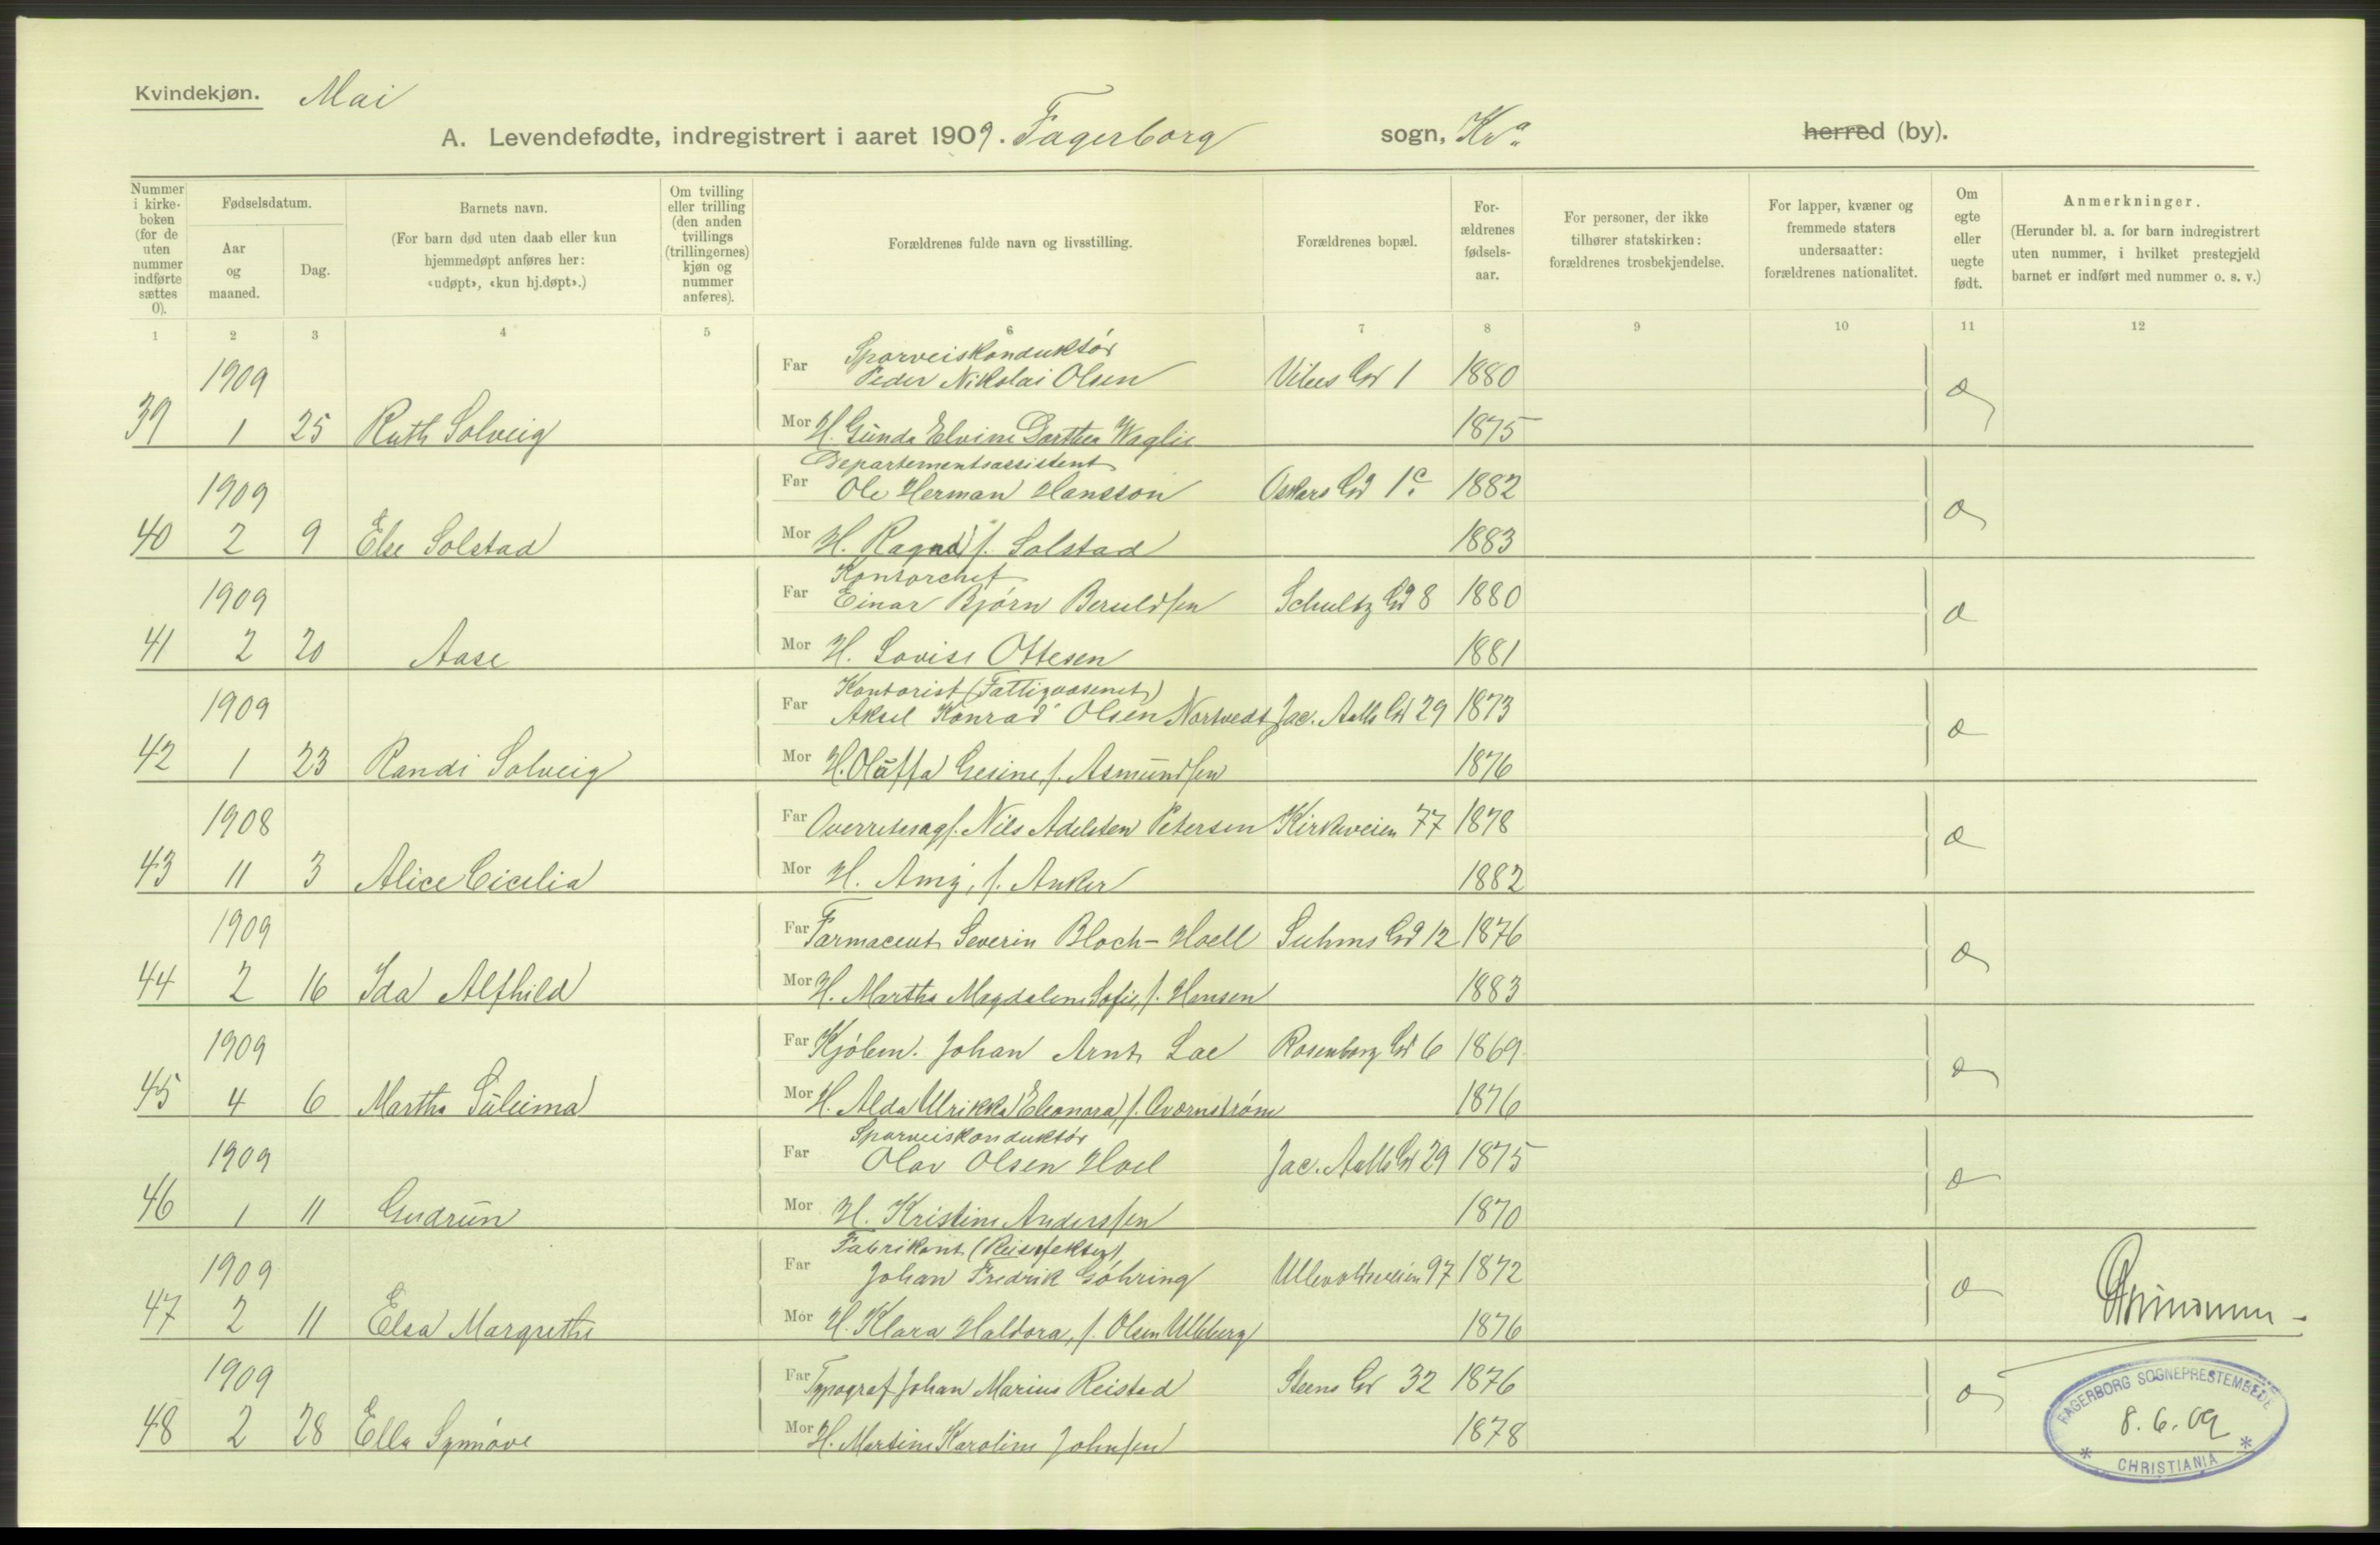 Kvindekjøn. Mai
A. Levendefødte, indregistrert i aaret 1909. Fagerborg sogn, Kra herred (by).
Nummer i kirke-boken (for de uten nummer indførte sættes 0).
Fødselsdatum.
Aar og maaned.
Dag.
Barnets navn.
(For barn død uten daab eller kun hjemmedøpt anføres her: «udøpt», «kun hj.døpt».)
Om tvilling eller trilling (den anden tvillings (trillingernes) kjøn og nummer anføres).
Forældrenes fulde navn og livsstilling.
Forældrenes bopæl.
For-ældrenes fødsels-aar.
For personer, der ikke tilhører statskirken: forældrenes trosbekjendelse.
For lapper, kvæner og fremmede staters undersaatter: forældrenes nationalitet.
Om egte eller uegte født.
Anmerkninger.
(Herunder bl. a. for barn indregistrert uten nummer, i hvilket prestegjeld barnet er indført med nummer o. s. v.)
1 2 3 4 5 6 7 8 9 10 11 12
Sporveiskonduktør
1909 Far Peder Nikolai Olsen Vibes Gd 1 1880 æ
39 1 25 Ruth Solveig Mor H. Gunda Elvine Dorthea Waglie 1875
Departementsassistent
1909 Far Ole Herman Hansson Oskars Gd 1c 1882 æ
40 2 9 Else Solstad Mor H. Ragnd f. Solstad 1883
Kontorchef
1909 Far Einar Bjørn Beruldsen Schultz Gd 8 1880 æ
41 2 20 Aase Mor H. Lovise Ottesen 1881
Kontorist (Fattigvæsenet)
1909 Far Aksel Konrad Olsen Nortvedt Jac. Aalls Gd 29 1873 æ
42 1 23 Randi Solveig Mor H. Oluffa Gesine, f. Asmundsen 1876
1908 Far Overretssagf. Nils Adelsten Petersen Kirkeveien 77 1878 æ
43 11 3 Alice Cicelia Mor H. Amy, f. Anker 1882
1909 Far Farmaceut Severin Bloch-Hoell Suhms Gd 12 1876 æ
44 2 16 Ida Alfhild Mor H. Martha Magdalene Sofie, f. Hansen 1883
1909 Far Kjøbm. Johan Arnt Lae Rosenborg Gd 6 1869 æ
45 4 6 Martha Suleima Mor H. Alda Ulrikka Eleonora, f. Qvarnstrøm 1876
Sporveiskonduktør
1909 Far Olav Olsen Hoel Jac. Aalls Gd 29 1875 æ
46 1 11 Gudrun Mor H. Kristine Anderssen 1870
Fabrikant (Reiseffekter)
1909 Far Johan Fredrik Göhring Ullevoldsveien 97 1872 æ
47 2 11 Elsa Margrethe Mor H. Klara Haldora, f. Olsen 1876
1909 Far Typograf Johan Marius Reistad Steens Gd 32 1876 æ
48 2 28 Ella Synnøve Mor H. Martine Karoline Johnsen 1878
FAGERBORG SOGNEPRESTEMBEDE
8.6.09
* CHRISTIANIA *